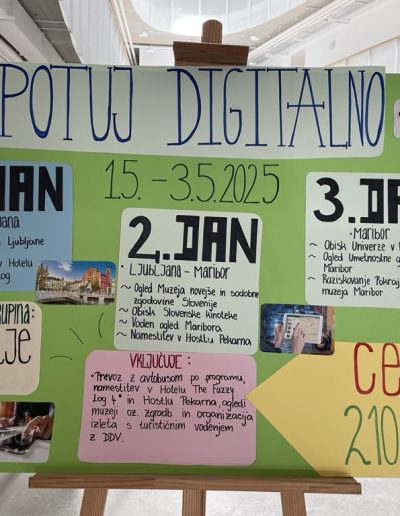 POTUJ DIGITALNO
1.5. - 3.5.2025
DAN
Ljubljane
v Hotelu
Log
2. DAN
• LJUBLJANA - MARIBOR
~ Ogled Muzeja novejše in sodobne
zgodovine Slovenije
~ Obisk Slovenske kinoteke
~ Voden ogled Maribora
~ Namestitev v Hostlu Pekarna
3. DA
• MARIBOR
~ Obisk Univerze v
~ Ogled Umetnostne g
Maribor
~ Raziskovanje Pokraj
muzeja Maribor
UPINA:
JE
VKLJUČUJE:
• Prevoz z avtobusom po programu,
namestitev v Hotelu The Fuzzy
Log 4* in Hostlu Pekarna, ogledi
muzeji oz. zgradb in organizacija
izleta s turističnim vodenjem
z DDV.
CE
210